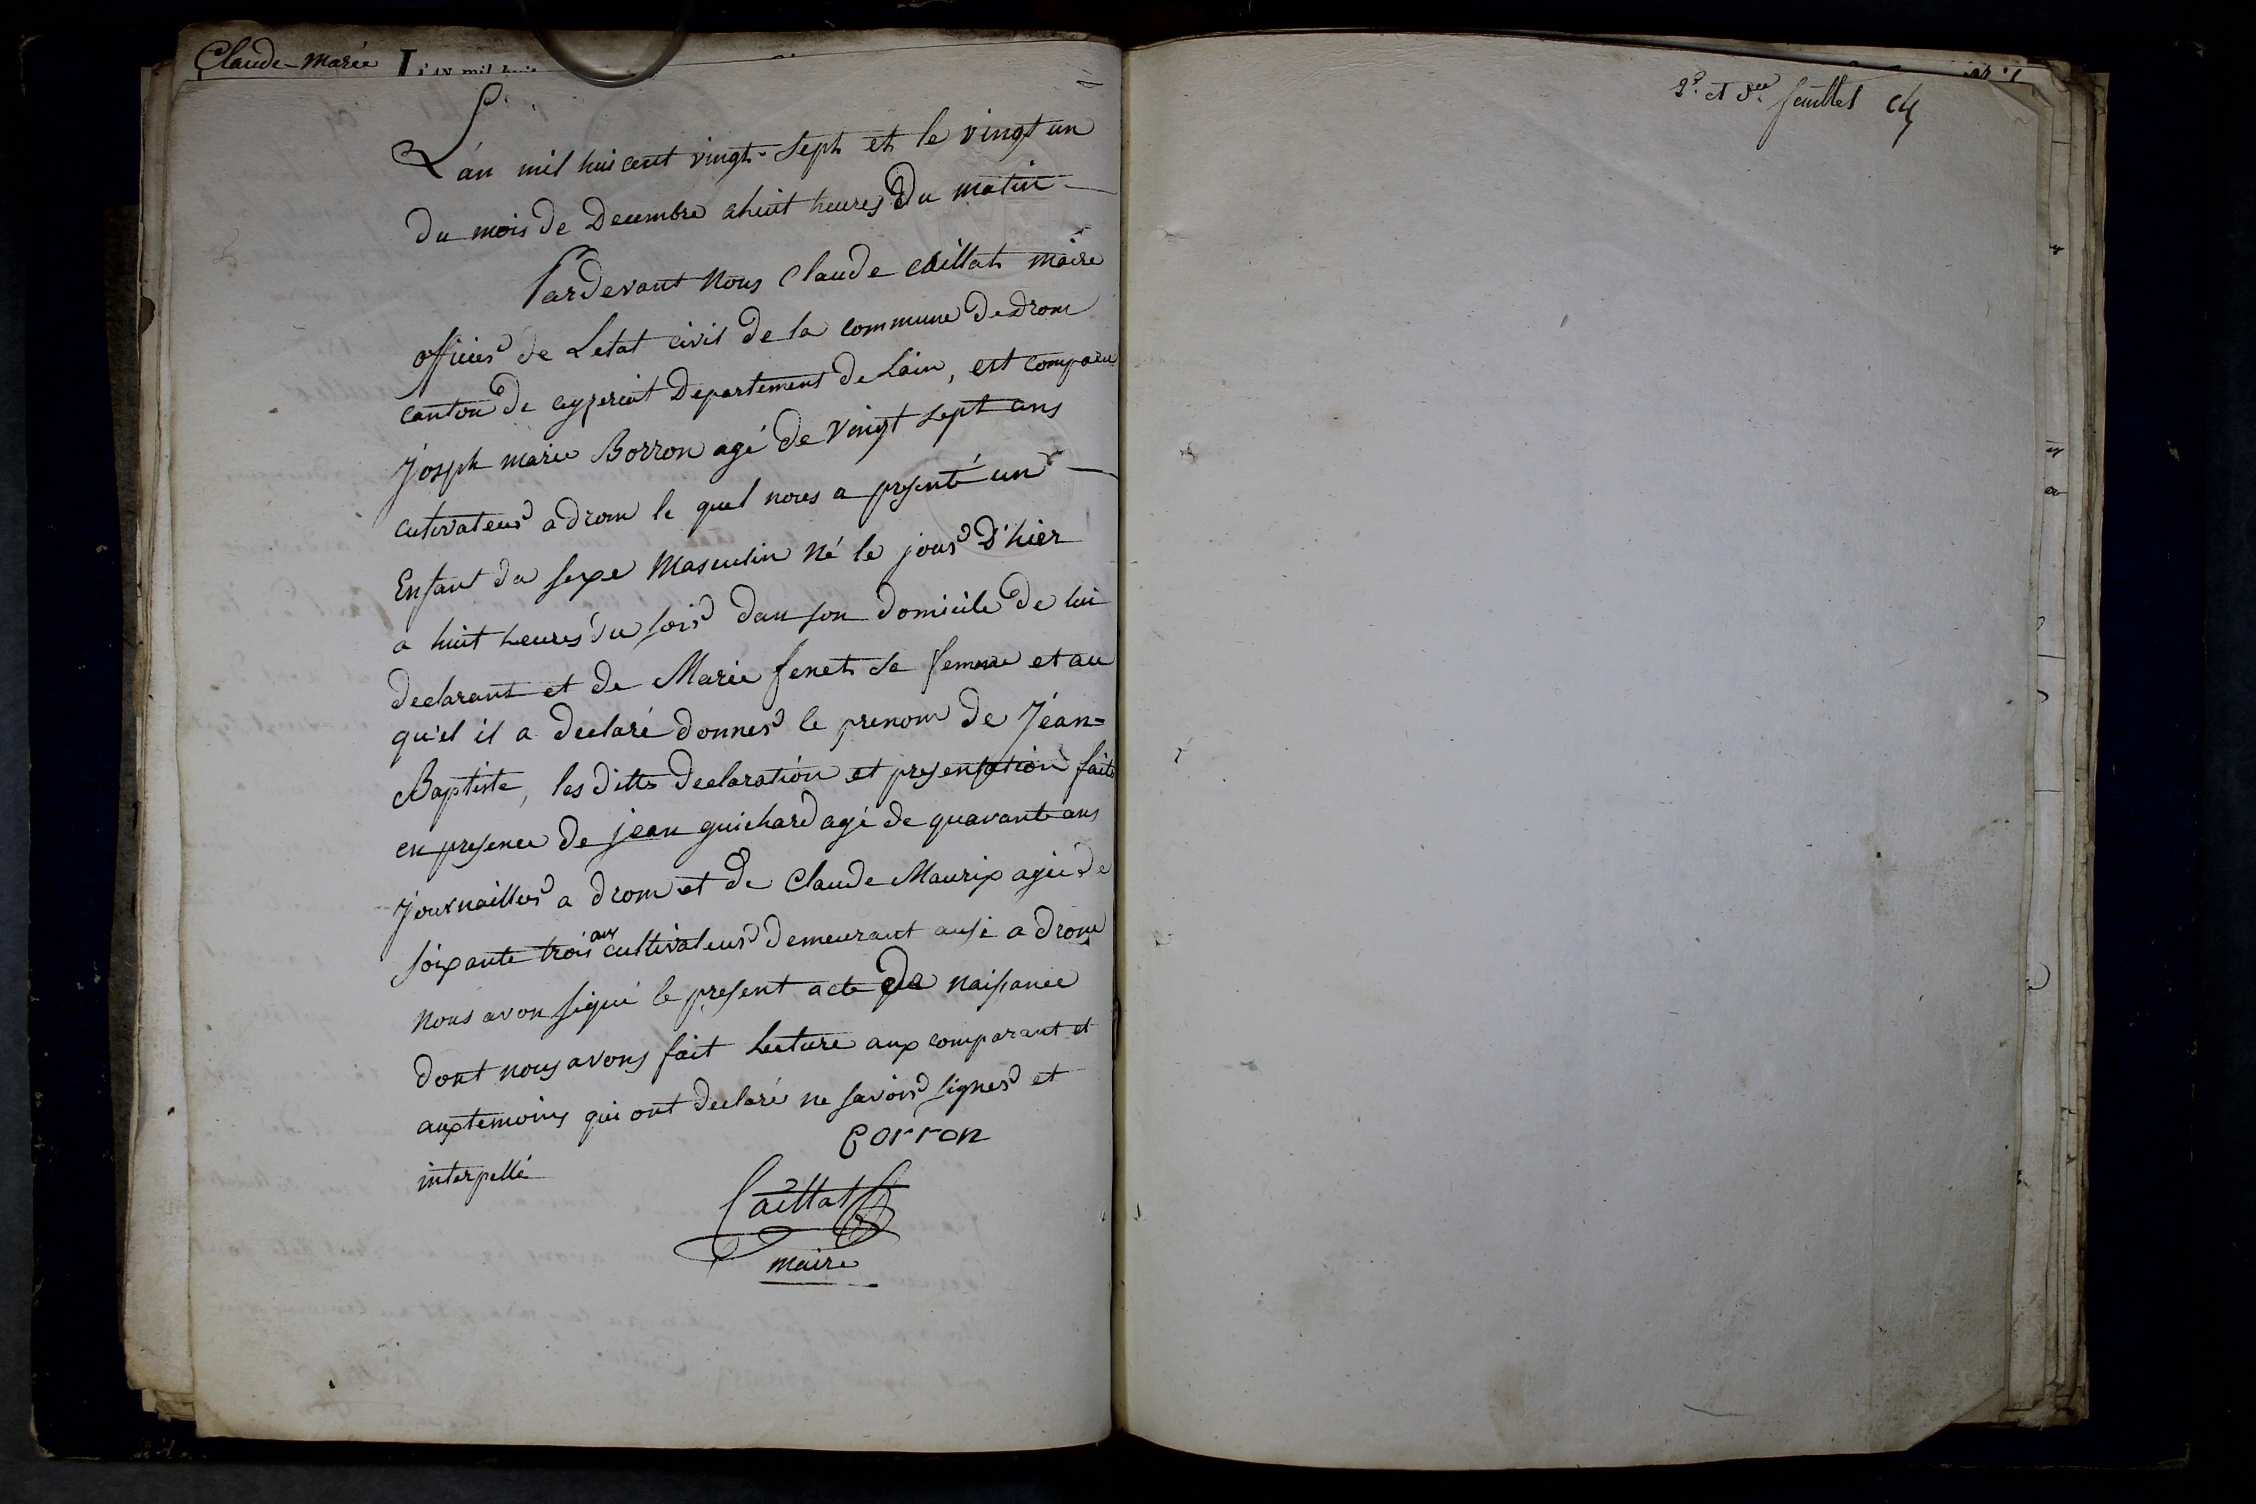 Claude-Marie L'AN mil huit
L'an mil huis cent vingt-sept et le vingt un
du mois de Decembre a huit heures Du matin
Pardevant Nous Claude Caillat maire
officier de Letat civil de la commune De drom
canton De ceyzeriat Departement De Lain, est comparu
joseph marie Borron agé De vingt sept ans
cutivateur a drom le quel nous a presenté un
Enfant du sexe Masculin Né le jour D'hier
a huit heures du soir dan son domicile De lui
declarant et de Marie fenet sa femme et au
qu'el il a declaré donner le prenom de Jéan=
Baptiste, les dittes declaration et presentation faite
en presence de jean guichard agé de quarante ans
journaillier a drom et de Claude Maurix agée de
soixante trois ans cultivateur demeurant ausi a drom
nous avon signé le present acte De naissance
dont nous avons fait Lecture aux comparant et
aux temoins qui ont declaré ne savoir signer et
interpellé
Borron
Caillat
maire
2e. et dee. feuillet